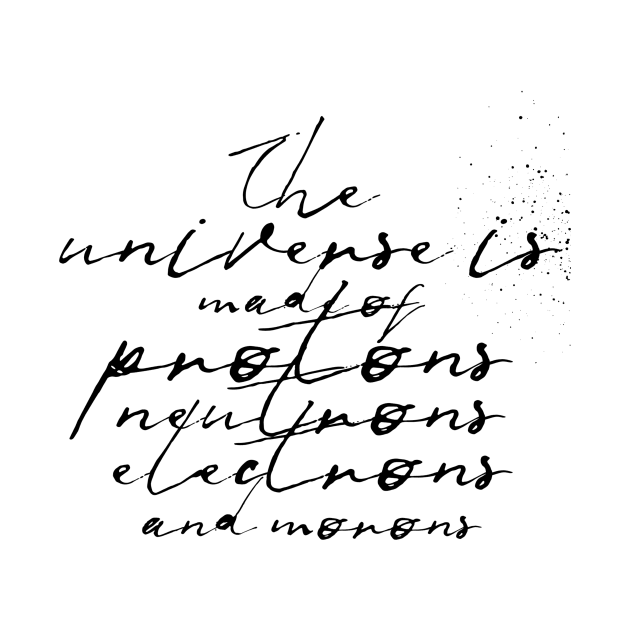 The
universe is
made of
protons
neutrons
electrons
and morons